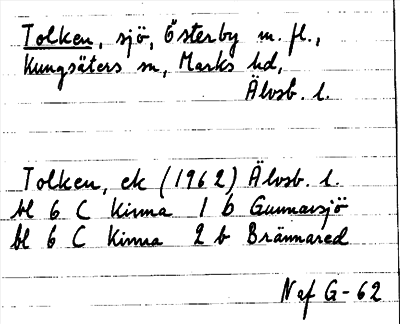 Tolken, sjö, Österby m. fl.,
Kungsäters sn, Marks hd,
Älvsb. l.
Tolken, ek (1962) Älvsb. l.
bl 6 C Kinna 1 b Gunnarsjö
bl 6 C Kinna 2 b Brännared
Naf G-62